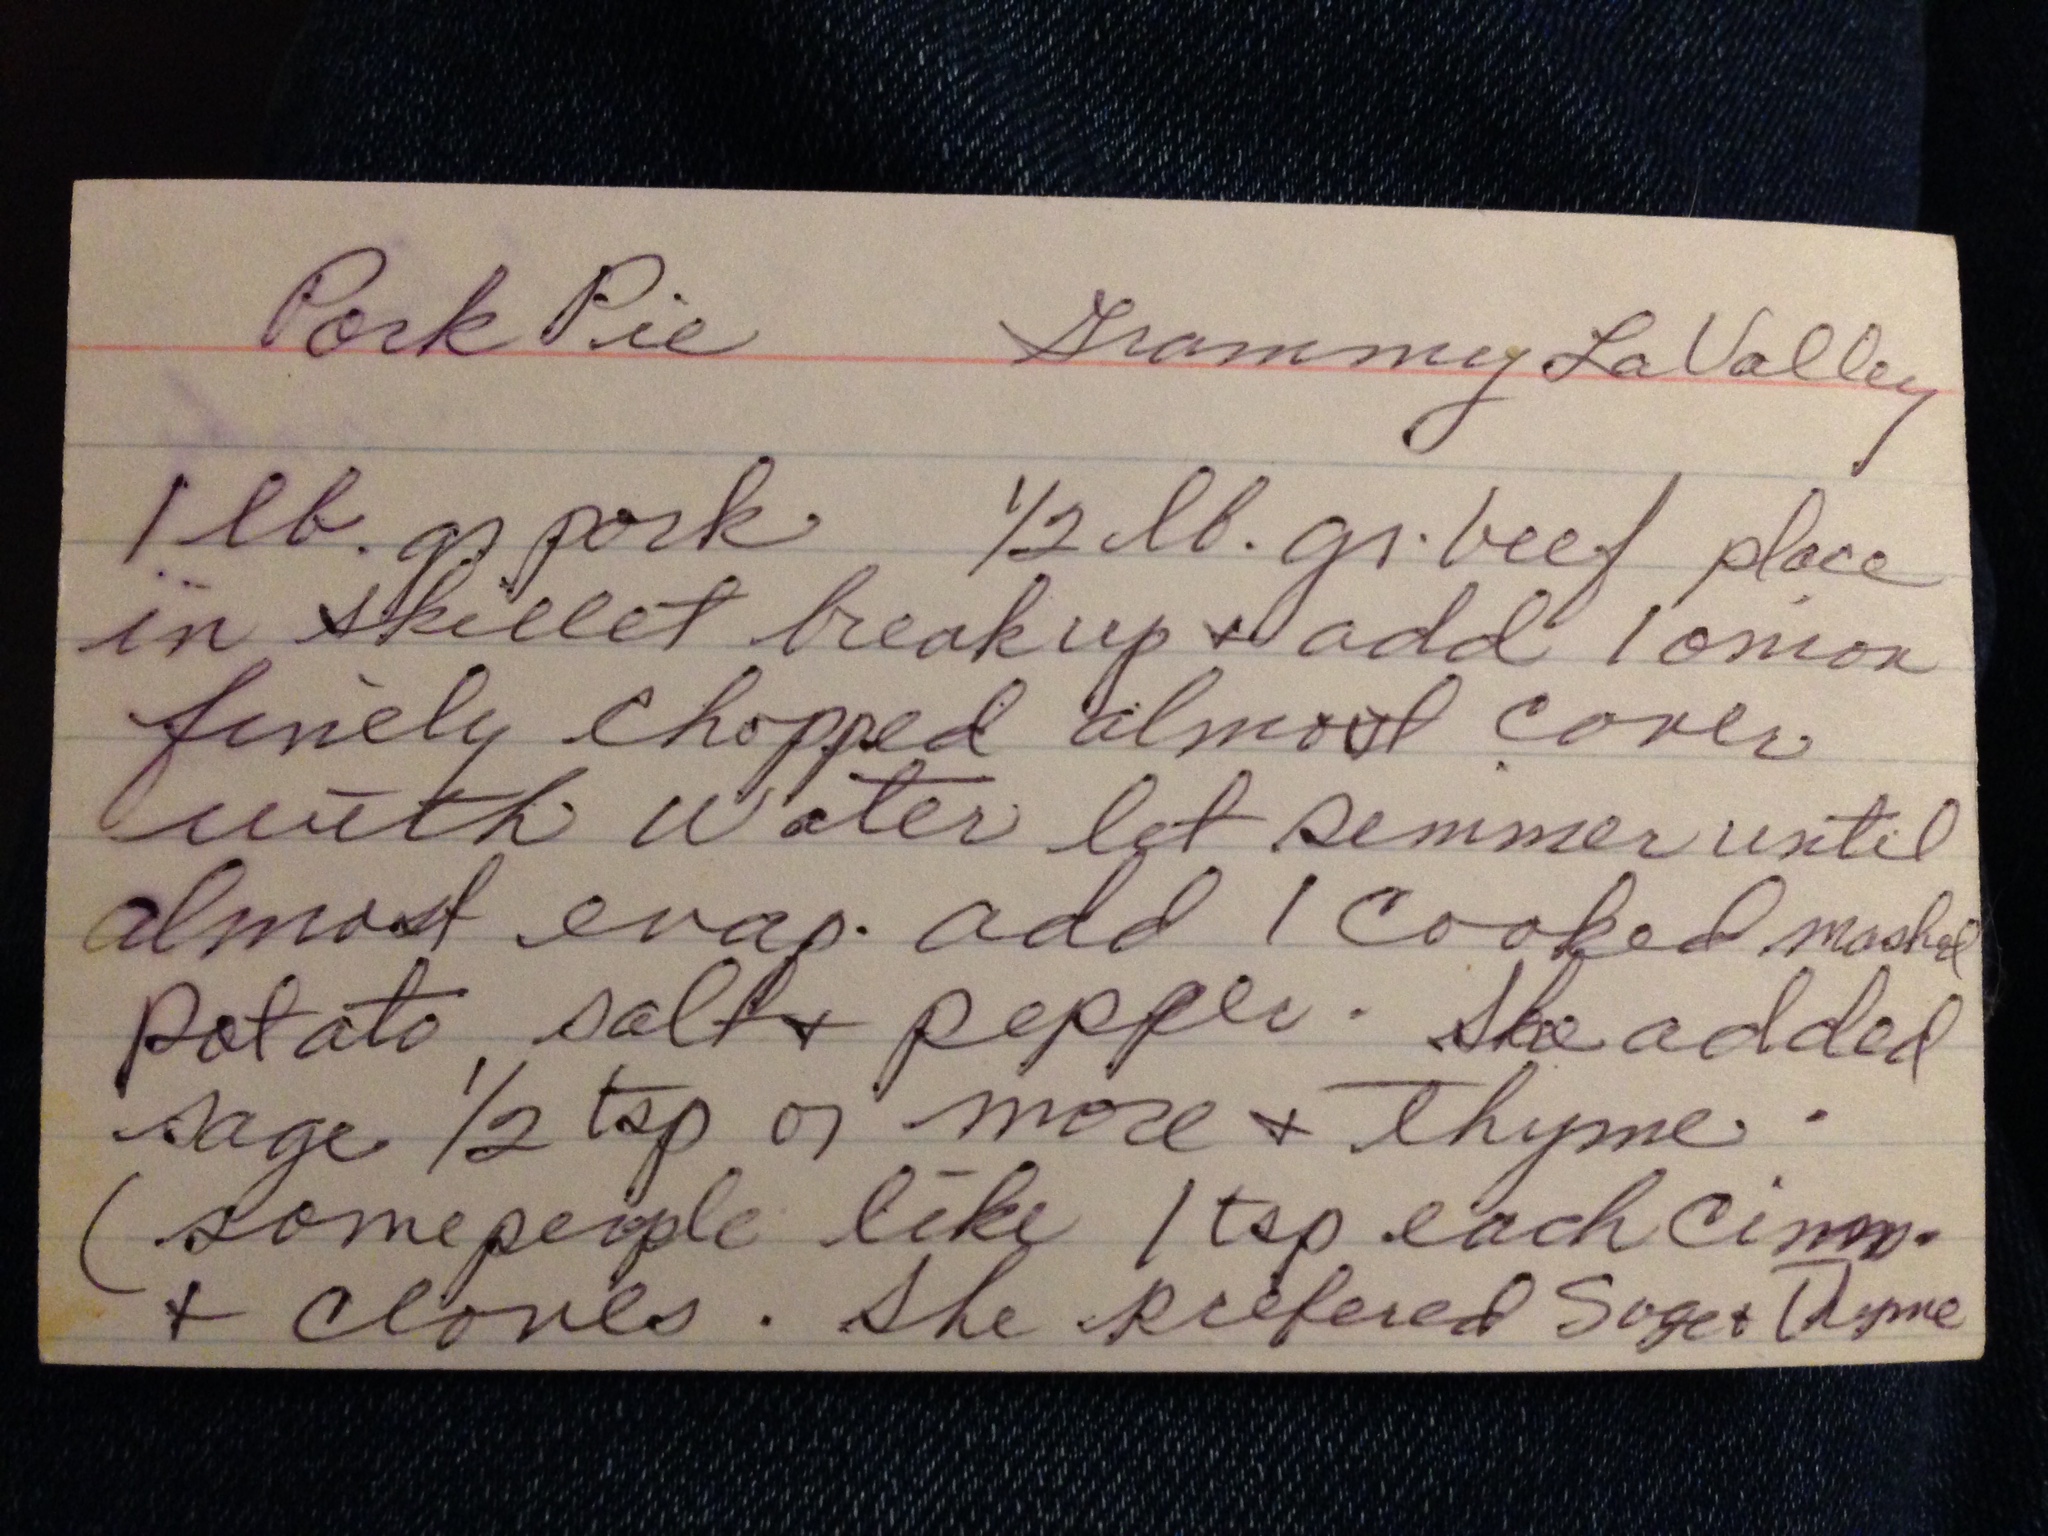 Pork Pie Grammy LaValley
1 lb. gr pork 1/2 lb. gr. beef place
in skillet break up + add 1 onion
finely chopped almost cover
with water let simmer until
almost evap. add 1 cooked mashed
potato salt + pepper. She added
sage 1/2 tsp or more + Thyme.
(some people like 1 tsp each cinn.
+ cloves. She prefered Sage + Thyme